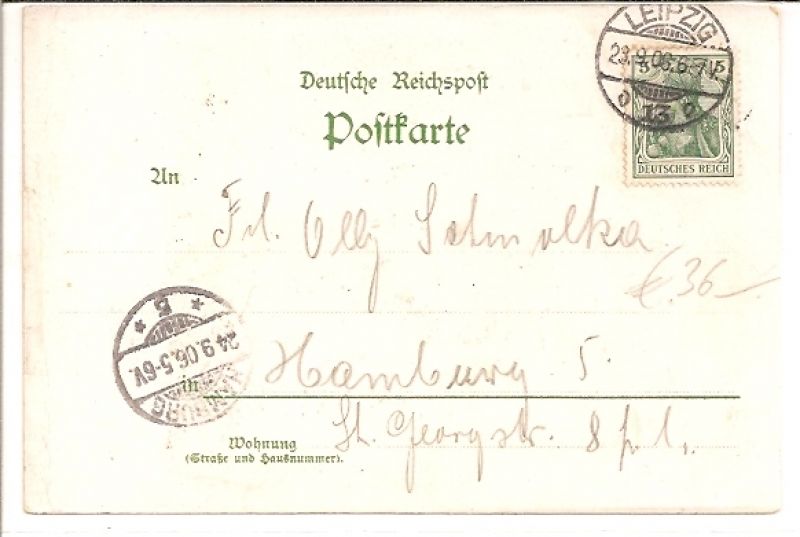 LEIPZIG
23.9.06.6-7V.
13
5 5
DEUTSCHES REICH
Deutsche Reichspost
Postkarte
An
Frl. Olly Schmolka
€ 36 –
5
24.9.06.5-6V.
HAMBURG
in Hamburg 5.
Wohnung
(Straße und Hausnummer).
St. Georgstr. 8 p. l.